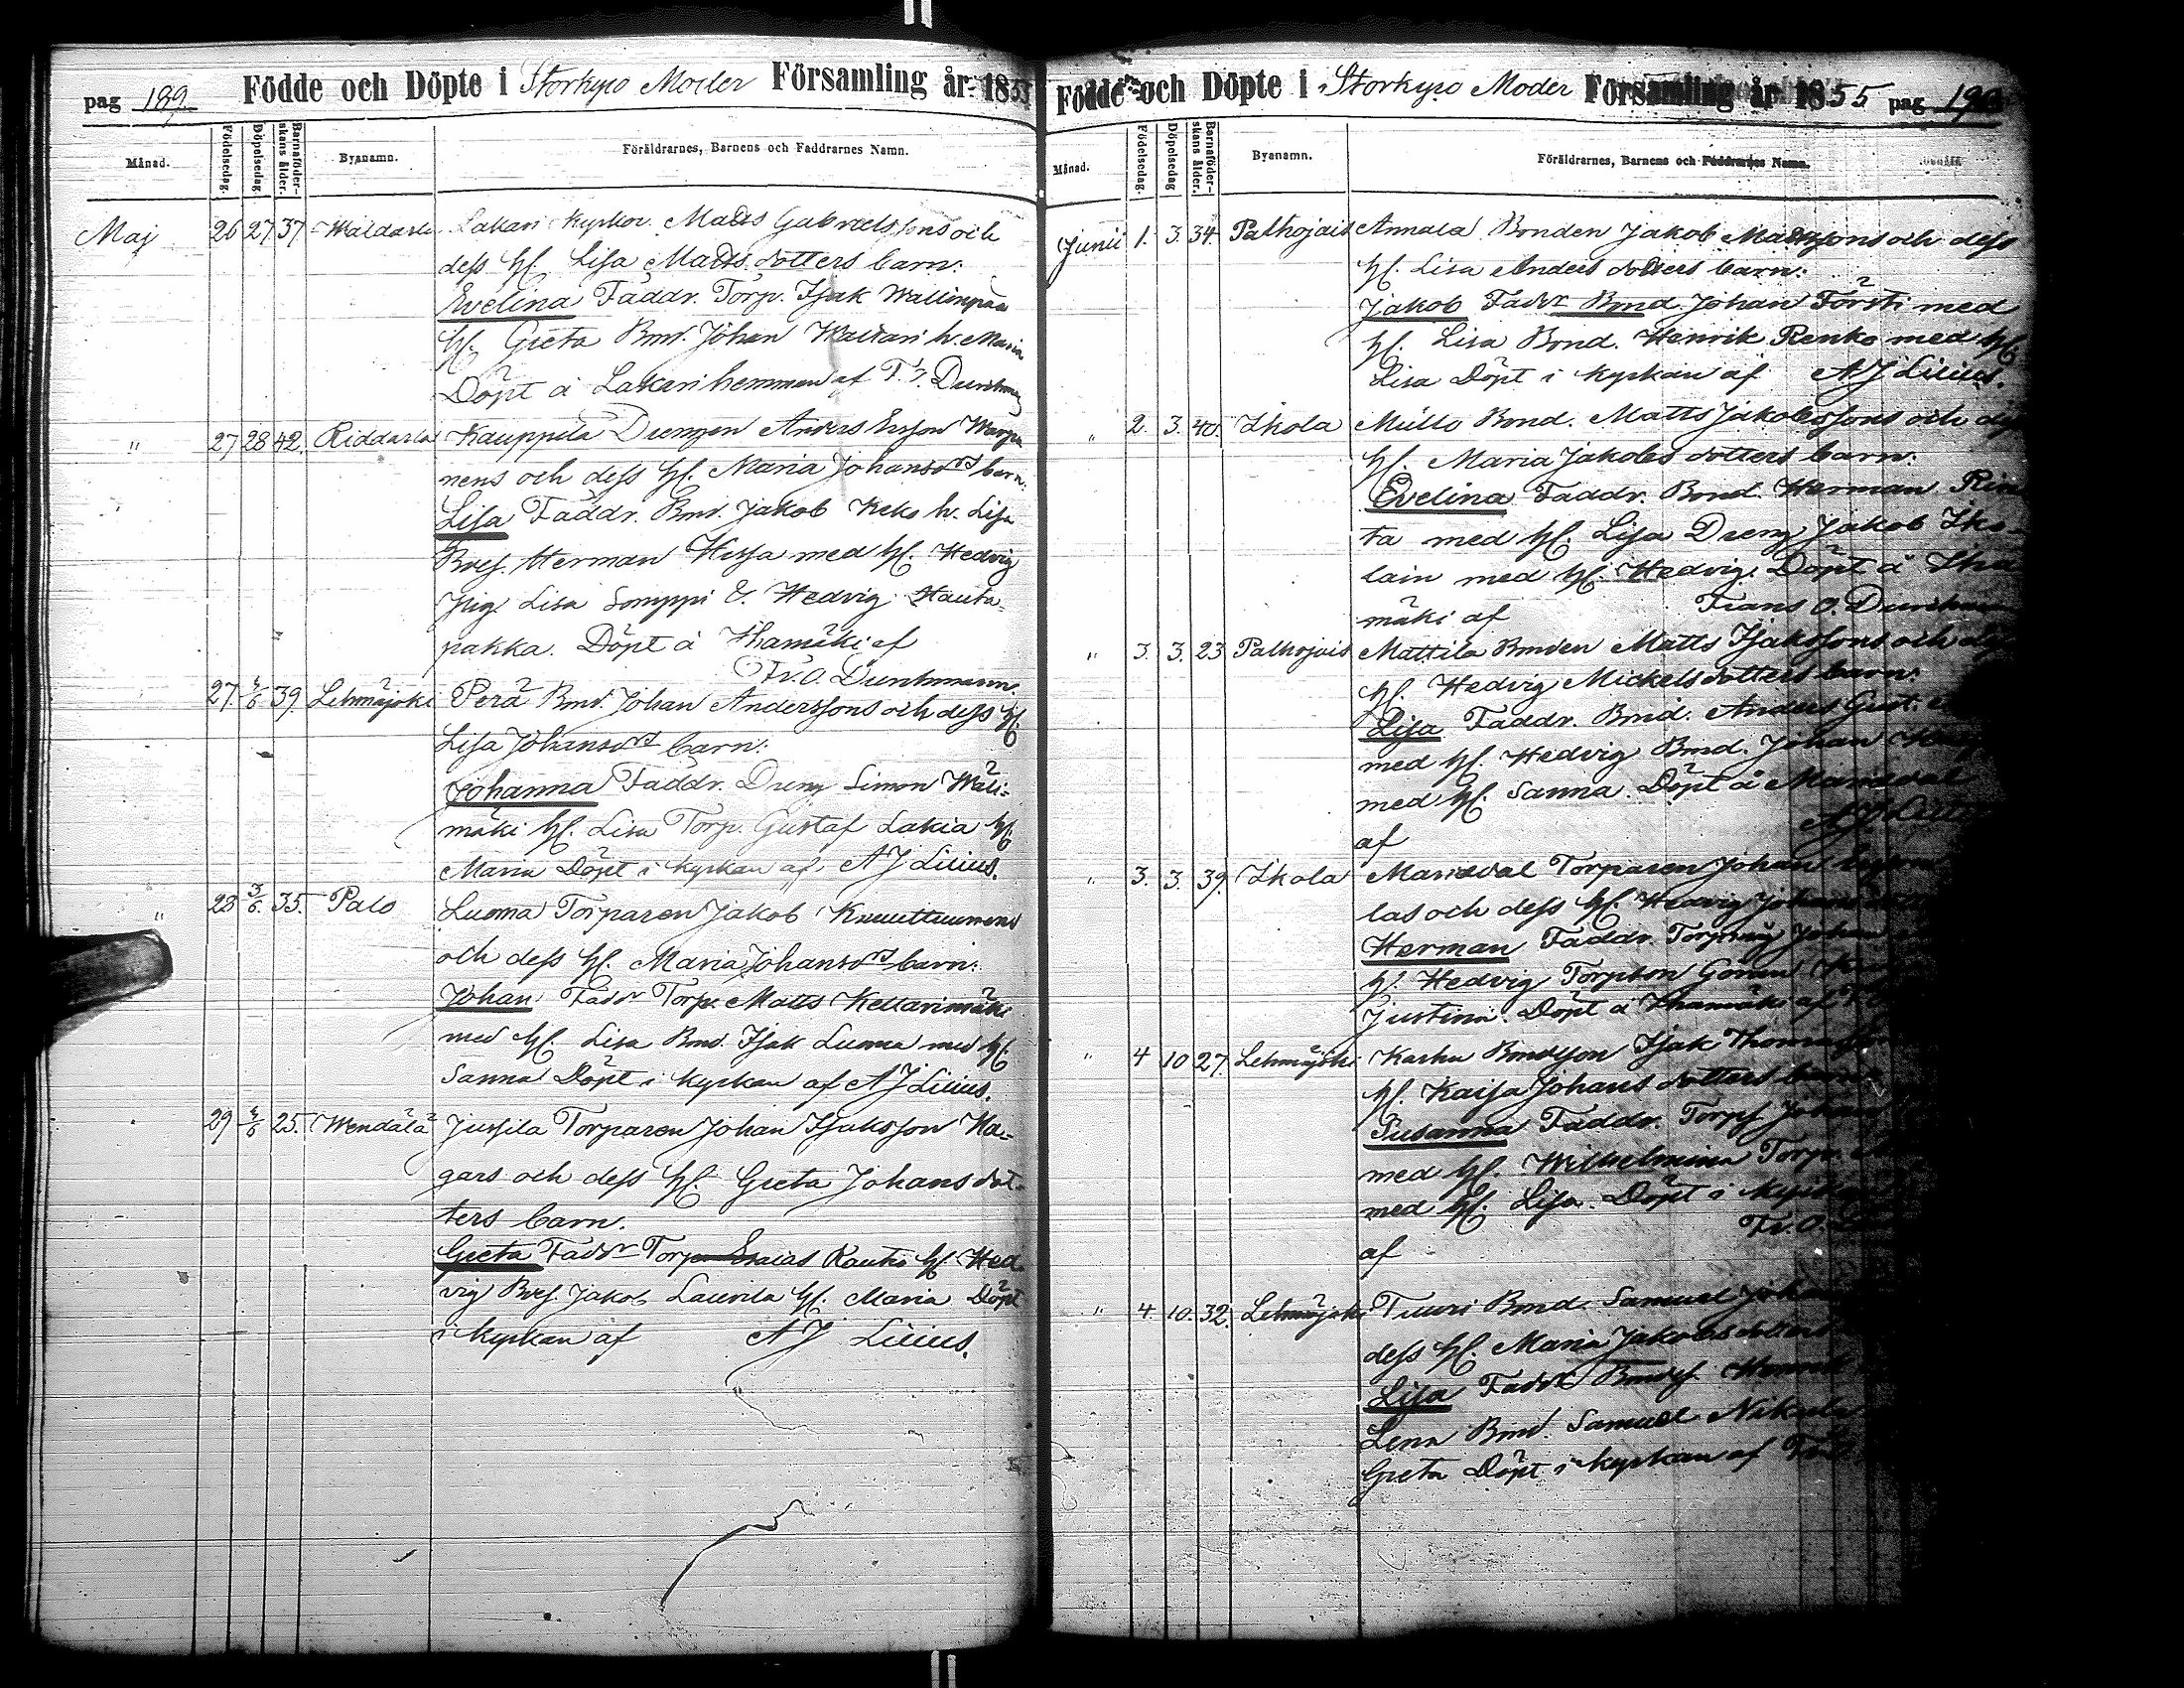 pag 189. Födde och Döpte i Storkyro Moder Församling år 1855
Månad. Födelsedag. Döpelsedag. Barnaföderskans ålder. Byanamn. Föräldrarnes, Barnens och Faddrarnes Namn.
Maj 26 27 37 Lakari Kyrkov. Matts Gabrielssons och
dess H. Lisa Matts dotters barn:
Evelina Faddr. Torp. Isak Wallinpää
H. Greta Bond. Johan Waltari h. Maria
Döpt å Lakari hemman af
" 27 28 42. Riddarla Kauppila Drengen Anders Ersson
nens och dess H. Maria Johansdrs barn:
Lisa Faddr. Bond. Jakob Keko h. Lisa
Herman Hissa med H. Hedvig
Pig. Lisa Somppi & Hedvig Hauta-
pakka. Döpt å Ihamäki af
Fr. O. Durchman.
27. 4/6 39. Lehmäjoki Perä Bond. Johan Anderssons och dess H.
Lisa Johansdrs barn:
Johanna Faddr. Dreng Simon Wäli-
mäki H. Lisa Torp. Gustaf Lakia H.
Maria Döpt i Kyrkan af A J Lilius.
" 28 3/6. 35. Palo Luoma Torparen Jakob Knuuttunens
och dess H. Maria Johansdrs barn:
Johan Faddr Torp. Matts Kellarimäki
med H. Lisa Bond. Isak Luoma med H.
Sanna Döpt i Kyrkan af A J Lilius.
29 4/6 25. Wendälä Jussila Torparen Johan Isaksson Ha-
gars och dess H. Greta Johans dot-
ters barn.
Greta Faddr Torp Esaias Rauto H. Hed
vig Jakob Laurila H. Maria Döpt
i Kyrkan af A J Lilius.
Födde och Döpte i Storkyro Moder Församling år 1855 pag 190.
Månad. Födelsedag. Döpelsedag Barnaföderskans ålder. Byanamn. Föräldrarnes, Barnens och Faddrarnes Namn.
Junii 1. 3. 34. Palhojais Annala Bonden Jakob Mattssons och dess
H. Lisa Anders dotters barn:
Jakob Faddr Bond. Johan Försti med
H. Lisa Bond. Henrik Renko med H.
Lisa Döpt i Kyrkan af A J Lilius.
" 2. 3. 40. Ikola Mullo Bond. Matts Jakobssons och dess
H. Maria Jakobs dotters barn:
Evelina Faddr. Bond. Herman Rin
ta med H. Lisa Dreng Jakob Iko-
lain med H. Hedvig. Döpt å Iha
mäki af Frans O. Durchman
" 3. 3. 23 Palhojais Mattila Bonden Matts Isakssons och dess
H. Hedvig Mickels dotters barn:
Lisa Faddr. Bond. Anders Gust.
med H. Hedvig Bond. Johan
med H. Sanna. Döpt å Marisdal
af A J Lilius
" 3. 3. 39. Ikola Marisdal Torparen Johan
las och dess H. Hedvig Johans
Herman Faddr. Torp Johan
H. Hedvig Torpson Göran
Justina. Döpt å Ihamäki af
" 4 10 27. Lehmäjoki Karhu Bondsson Isak Thomasson
H. Kaisa Johans dotters barn
Susanna Faddr. Torp Johan
med H. Wilhelmina Torp.
med H. Lisa. Döpt i Kyrkan
af Fr. O.
" 4. 10. 32. Lehmäjoki Tuuri Bond. Samuel Johan
dess H. Maria Jakobs dotters
Lisa Faddr Henrik
Lena Bond. Samuel
Greta Döpt i Kyrkan af